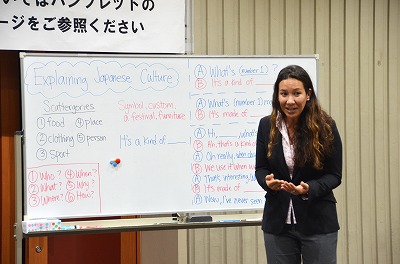 いてはパンフレットの
ージをご参照ください
Explaining Japanese Culture
Scattergories
① food ④ place
② clothing ⑤ person
③ Sport
Symbol, custom,
a festival, furniture
It's a kind of
① Who? ④ When?
② What? ⑤ Why?
③ Where? ⑥ How?
Ⓐ What's (number 1)?
Ⓑ It's a kind of
Ⓐ What's (number 1)
Ⓑ It's made of
Ⓐ Hi, What's
Ⓑ Ah, that's a kind
Ⓐ Oh really, who
Ⓑ We use it when
Ⓐ That's interesting,
Ⓑ It's made of
Ⓐ Wow, I've never seen